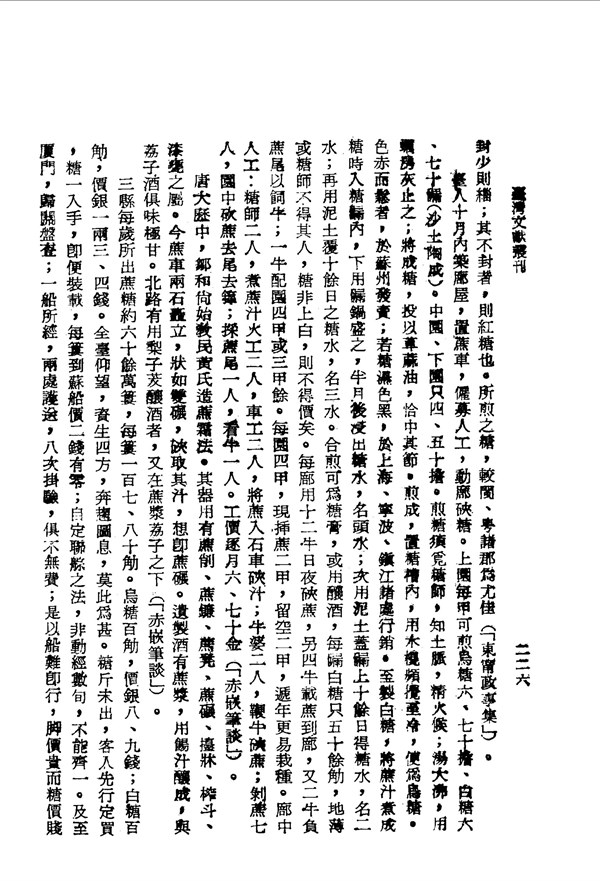 臺灣文獻叢刊
二二六
封少則緇；其不封者，則紅糖也。所煎之糖，較閩、粵諸郡爲尤佳（「東甯政事集」）。
臺人十月內築廍屋，置蔗車，僱募人工，動廍硤糖。上園每甲可煎烏糖六、七十擔、白糖六
、七十𥐥（沙土陶成）。中園、下園只四、五十擔。煎糖須覓糖師，知土脈，精火候；湯大沸，用
蠣房灰止之；將成糖，投以萆麻油，恰中其節。煎成，置糖槽內，用木棍頻攪至冷，便爲烏糖。
色赤而鬆者，於蘇州發賣；若糖濕色黑，於上海、寧波、鎭江諸處行銷。至製白糖，將蔗汁煮成
糖時入糖𥐥內，下用𥐥鍋盛之，半月後浸出糖水，名頭水；次用泥土蓋𥐥上十餘日得糖水，名二
水；再用泥土覆十餘日之糖水，名三水。合煎可爲糖膏，或用釀酒，每𥐥白糖只五十餘觔，地薄
或糖師不得其人，糖非上白，則不得價矣。每廍用十二牛日夜硤蔗，另四牛載蔗到廍，又二牛負
蔗尾以飼牛；一牛配園四甲或三甲餘。每園四甲，現揷蔗二甲，留空二甲，遞年更易栽種。廍中
人工：糖師二人，煮蔗汁火工二人，車工二人，將蔗入石車硤汁；牛婆二人，鞭牛硤蔗；剝蔗七
人，園中砍蔗去尾去籜；採蔗尾一人，看牛一人。工價逐月六、七十金（「赤嵌筆談」）。
唐大歷中，鄒和尙始敎民黃氏造蔗霜法。其器用有蔗削、蔗鐮、蔗凳、蔗碾、搾牀、榨斗、
漆甕之點。今蔗車兩石矗立，狀如雙碾，硤取其汁，想卽蔗碾。遺製酒有蔗漿，用餳汁釀成，與
荔子酒俱味極甘。北路有用梨子茇釀酒者，又在蔗漿荔子之下（「赤嵌筆談」）。
三縣每歲所出蔗糖約六十餘萬簍，每簍一百七、八十觔。烏糖百觔，價銀八、九錢；白糖百
觔，價銀一兩三、四錢。全臺仰望，資生四方，奔趨圖息，莫此爲甚。糖斤未出，客人先行定買
，糖一入手，卽便裝載，每簍到蘇船價二錢有零；自定聯䑸之法，非動經數旬，不能齊一。及至
厦門，歸關盤查；一船所經，兩處護送，八次掛驗，俱不無費；是以船難卽行，脚價貴而糖價賤